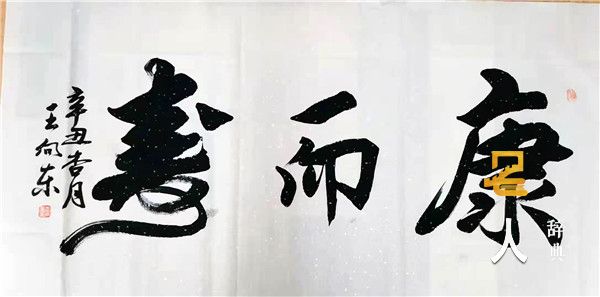 康而寿
辛丑杏月
王向东
名人辞典